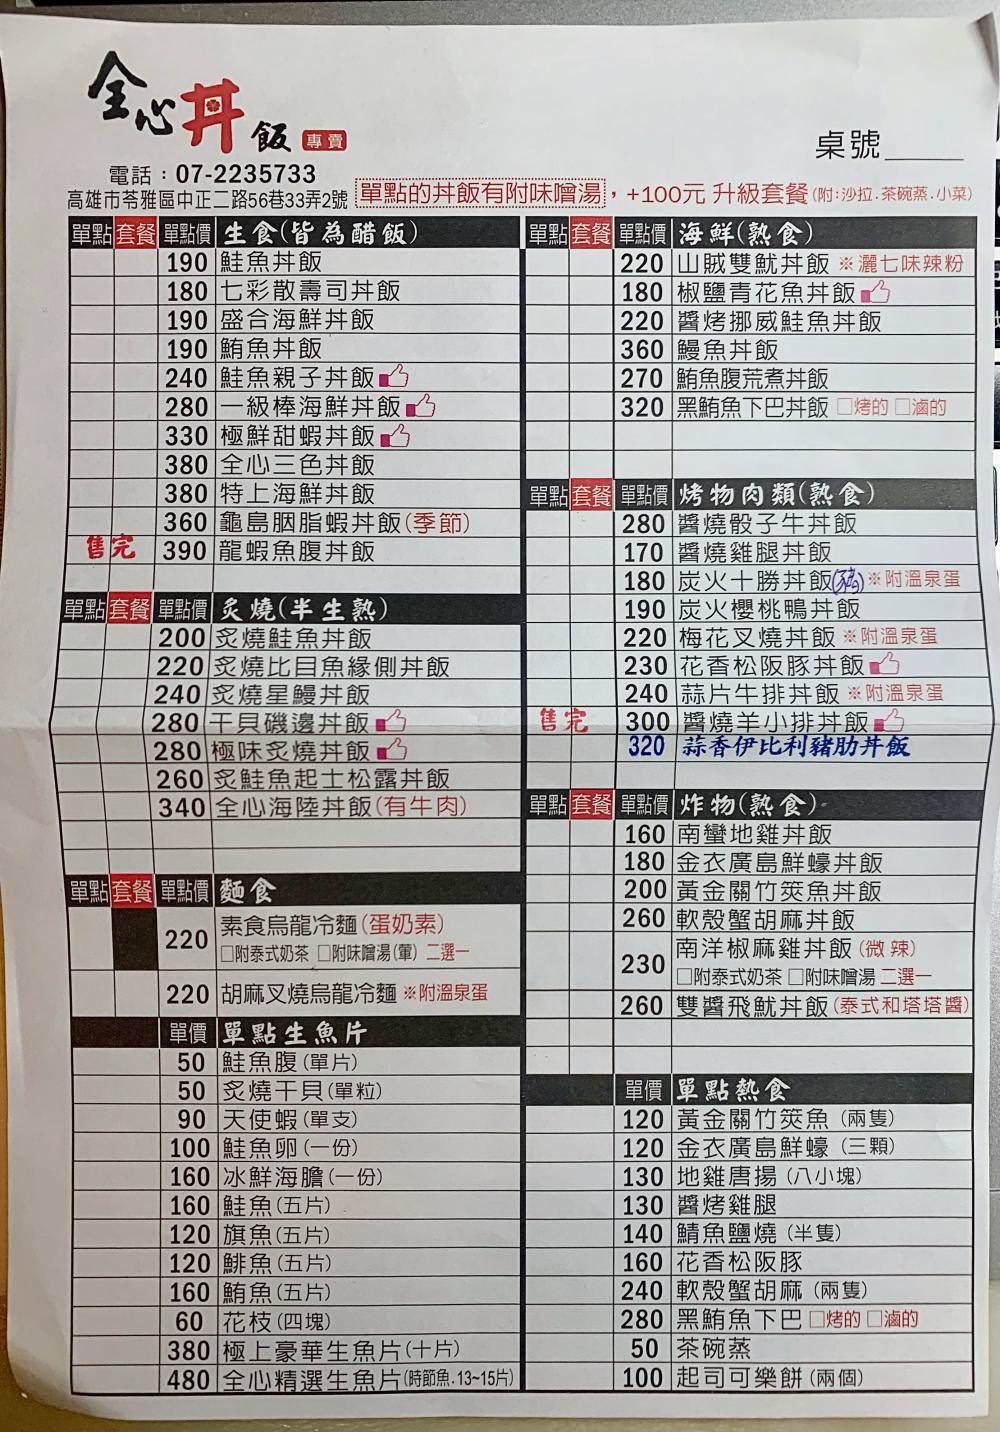 全心丼飯 專賣
桌號
電話：07-2235733
高雄市苓雅區中正二路56巷33弄2號
單點的丼飯有附味噌湯，+100元 升級套餐(附:沙拉.茶碗蒸.小菜)
單點 套餐 單點價 生食(皆為醋飯)
190 鮭魚丼飯
180 七彩散壽司丼飯
190 盛合海鮮丼飯
190 鮪魚丼飯
240 鮭魚親子丼飯
280 一級棒海鮮丼飯
330 極鮮甜蝦丼飯
380 全心三色丼飯
380 特上海鮮丼飯
360 龜島胭脂蝦丼飯(季節)
售完 390 龍蝦魚腹丼飯
單點 套餐 單點價 炙燒(半生熟)
200 炙燒鮭魚丼飯
220 炙燒比目魚緣側丼飯
240 炙燒星鰻丼飯
280 干貝磯邊丼飯
280 極味炙燒丼飯
260 炙鮭魚起士松露丼飯
340 全心海陸丼飯(有牛肉)
單點 套餐 單點價 麵食
220 素食烏龍冷麵(蛋奶素)
□附泰式奶茶 □附味噌湯(葷) 二選一
220 胡麻叉燒烏龍冷麵 ※附溫泉蛋
單價 單點生魚片
50 鮭魚腹(單片)
50 炙燒干貝(單粒)
90 天使蝦(單支)
100 鮭魚卵(一份)
160 冰鮮海膽(一份)
160 鮭魚(五片)
120 旗魚(五片)
120 鯡魚(五片)
160 鮪魚(五片)
60 花枝(四塊)
380 極上豪華生魚片(十片)
480 全心精選生魚片(時節魚.13~15片)
單點 套餐 單點價 海鮮(熟食)
220 山賊雙魷丼飯 ※灑七味辣粉
180 椒鹽青花魚丼飯
220 醬烤挪威鮭魚丼飯
360 鰻魚丼飯
270 鮪魚腹荒煮丼飯
320 黑鮪魚下巴丼飯 □烤的 □滷的
單點 套餐 單點價 烤物肉類(熟食)
280 醬燒骰子牛丼飯
170 醬燒雞腿丼飯
180 炭火十勝丼飯(豬)※附溫泉蛋
190 炭火櫻桃鴨丼飯
220 梅花叉燒丼飯 ※附溫泉蛋
230 花香松阪豚丼飯
240 蒜片牛排丼飯 ※附溫泉蛋
售完 300 醬燒羊小排丼飯
320 蒜香伊比利豬肋丼飯
單點 套餐 單點價 炸物(熟食)
160 南蠻地雞丼飯
180 金衣廣島鮮蠔丼飯
200 黃金關竹筴魚丼飯
260 軟殼蟹胡麻丼飯
230 南洋椒麻雞丼飯(微辣)
□附泰式奶茶 □附味噌湯 二選一
260 雙醬飛魷丼飯(泰式和塔塔醬)
單價 單點熱食
120 黃金關竹筴魚 (兩隻)
120 金衣廣島鮮蠔 (三顆)
130 地雞唐揚 (八小塊)
130 醬烤雞腿
140 鯖魚鹽燒 (半隻)
160 花香松阪豚
240 軟殼蟹胡麻 (兩隻)
280 黑鮪魚下巴 □烤的 □滷的
50 茶碗蒸
100 起司可樂餅(兩個)